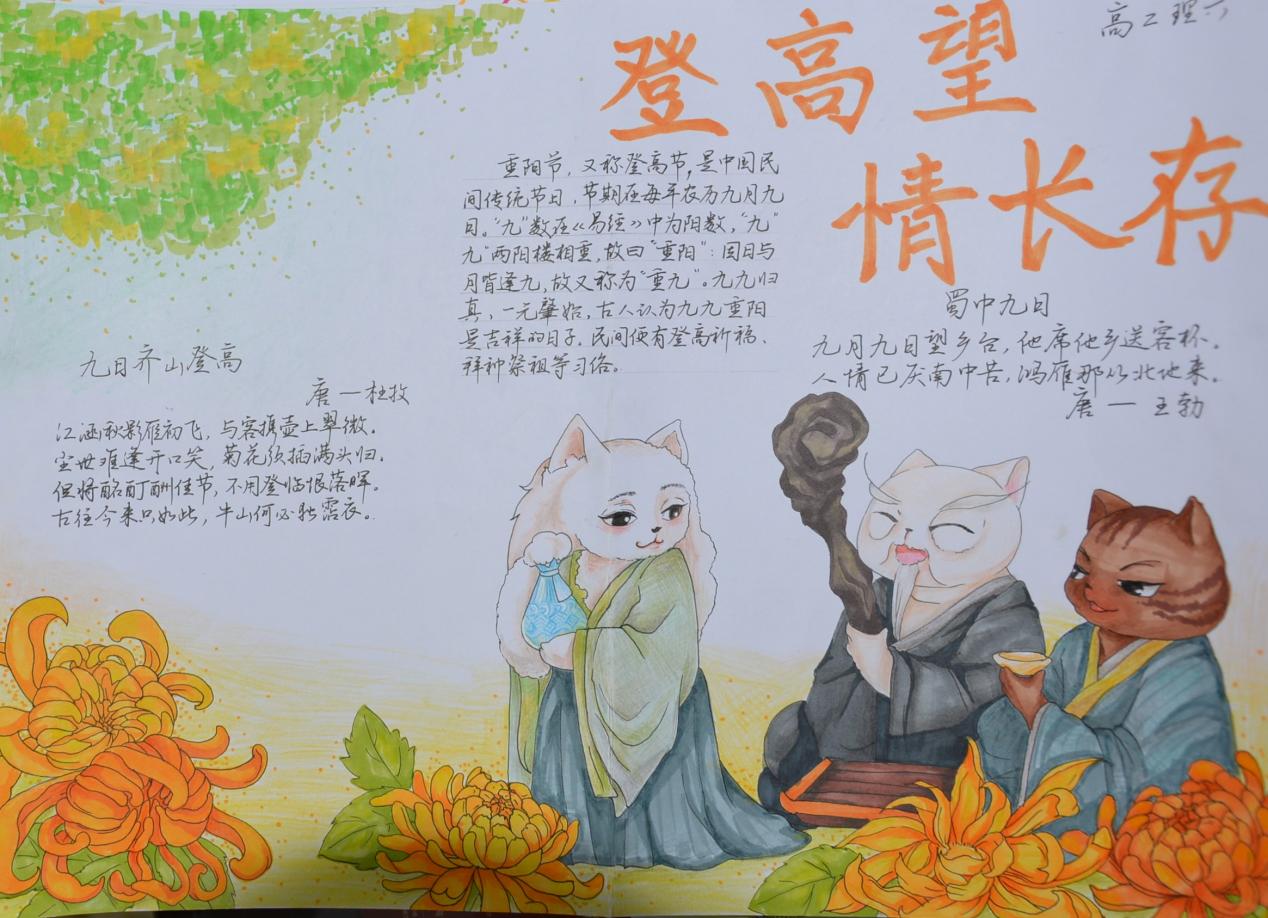 高二理六
登高望
情长存
重阳节，又称登高节，是中国民
间传统节日，节期在每年农历九月九
日。“九”数在《易经》中为阳数，“九
九”两阳楼相重，故曰“重阳”：因日与
月皆逢九，故又称为“重九”。九九归
真，一元肇始，古人认为九九重阳
是吉祥的日子。民间便有登高祈福、
拜神祭祖等习俗。
蜀中九日
九月九日望乡台，他席他乡送客杯。
人情已厌南中苦，鸿雁那从北地来。
唐一王勃
九日齐山登高
唐一杜牧
江涵秋影雁初飞，与客携壶上翠微。
尘世难逢开口笑，菊花须插满头归。
但将酩酊酬佳节，不用登临恨落晖。
古往今来只如此，牛山何必独霑衣。